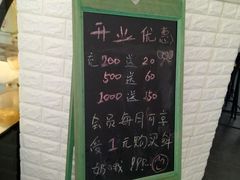 开业优惠
充200送20
500送60
1000送150
会员每月可享
受1元购买鲜
奶